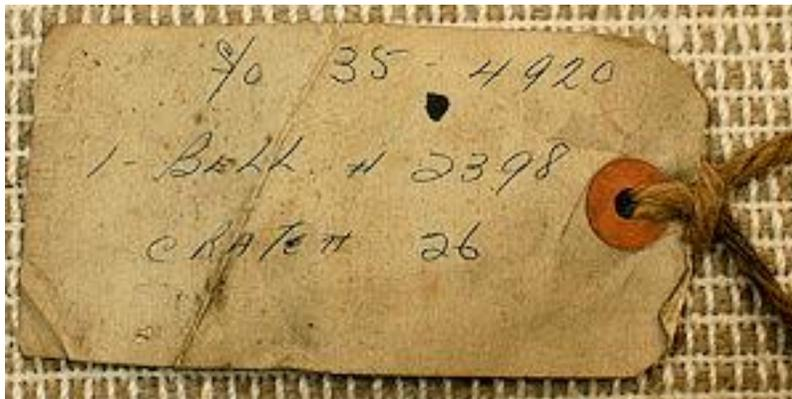 S/O 35-4920
1- BELL # 2398
CRATE # 26